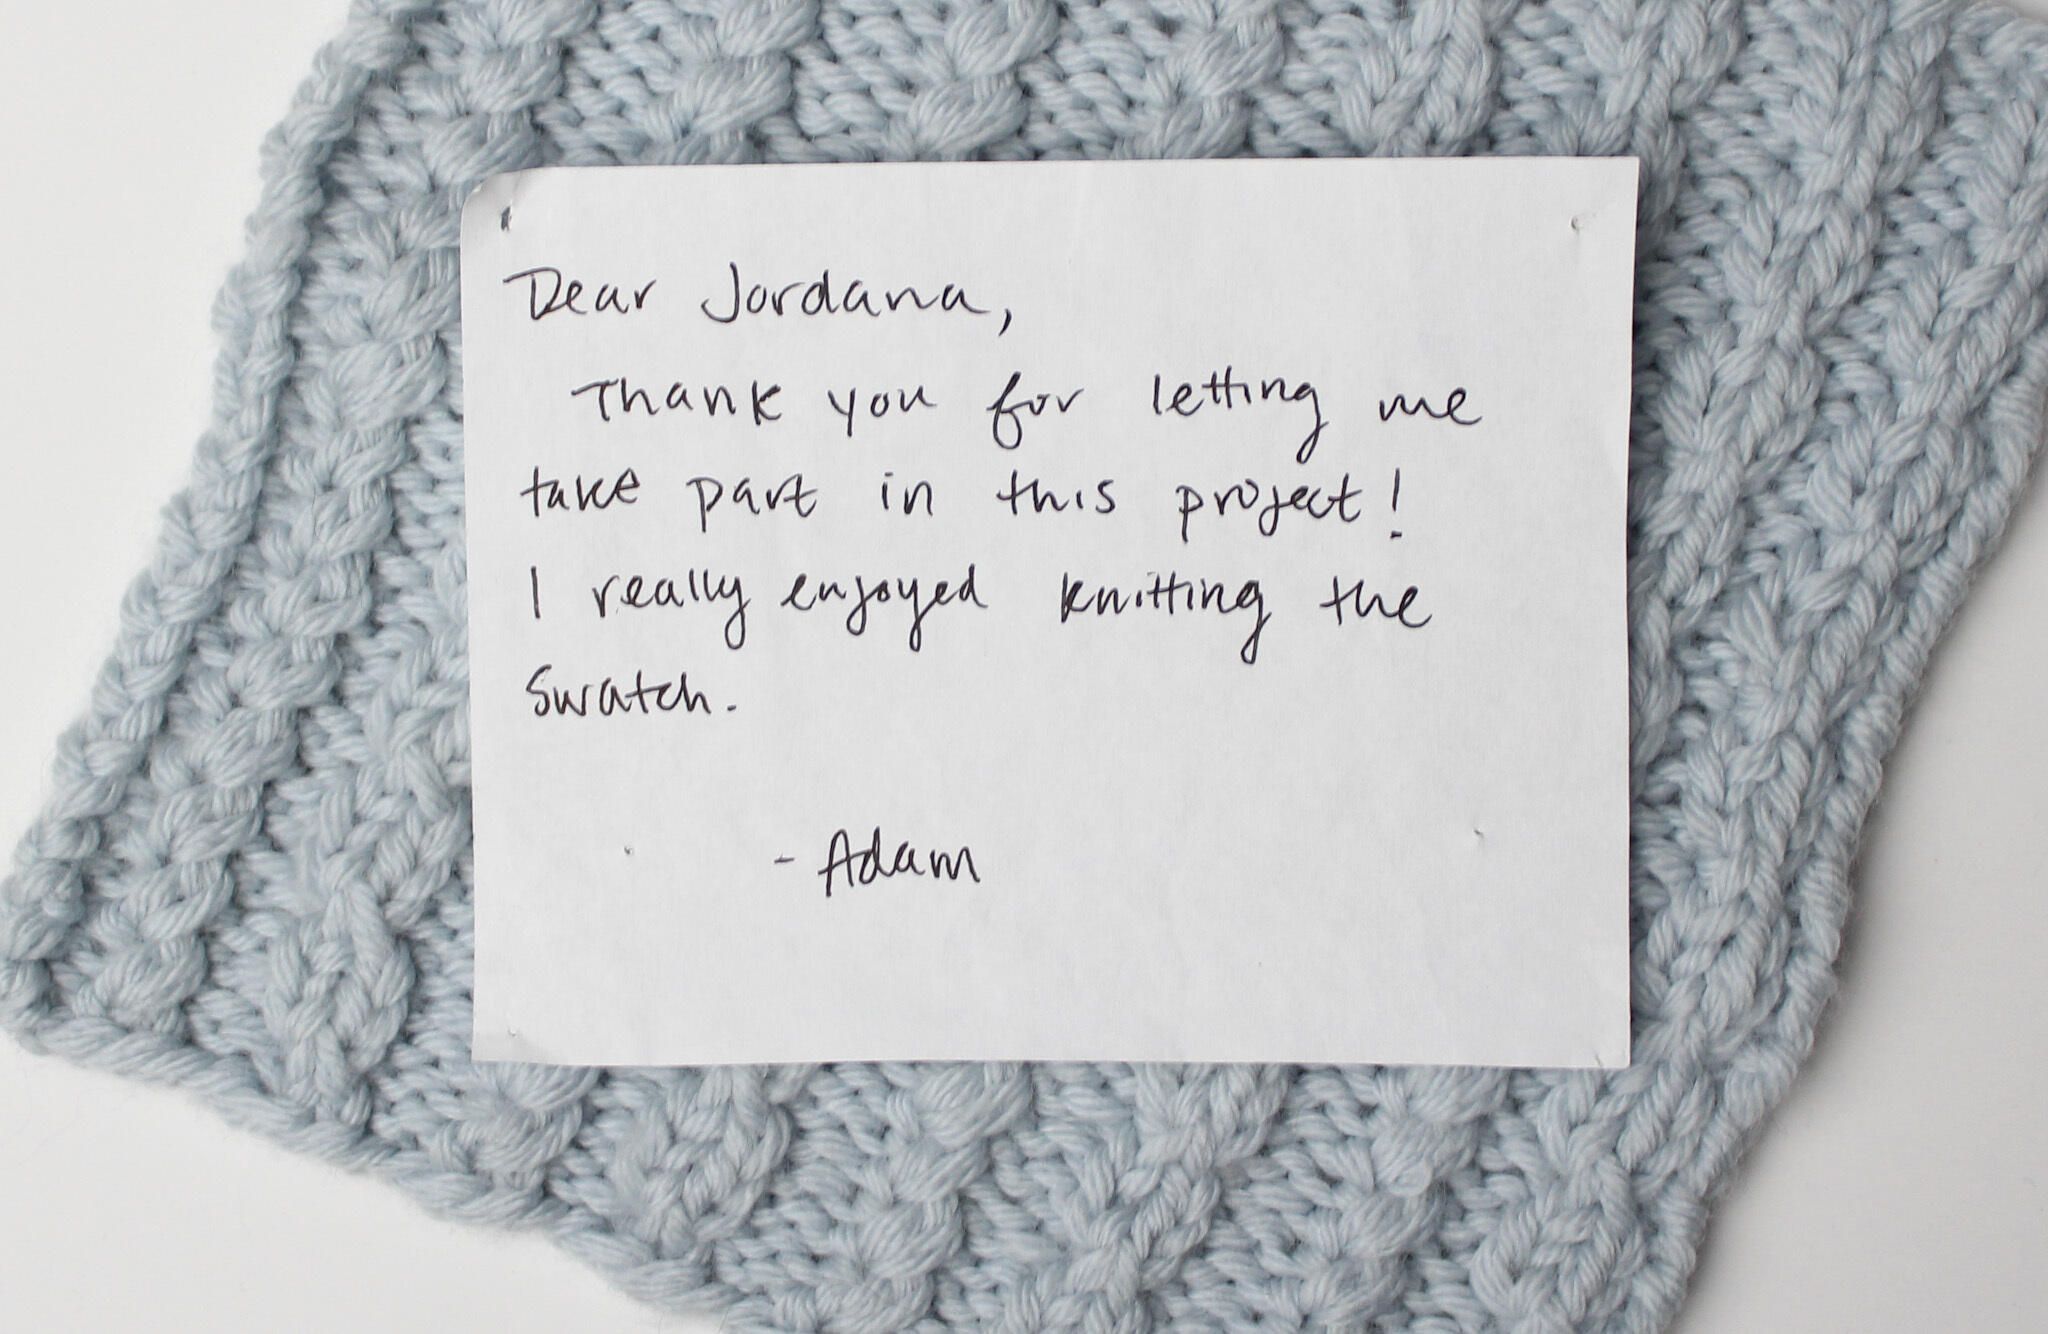 Dear Jordana,
Thank you for letting me
take part in this project!
I really enjoyed knitting the
Swatch.
- Adam